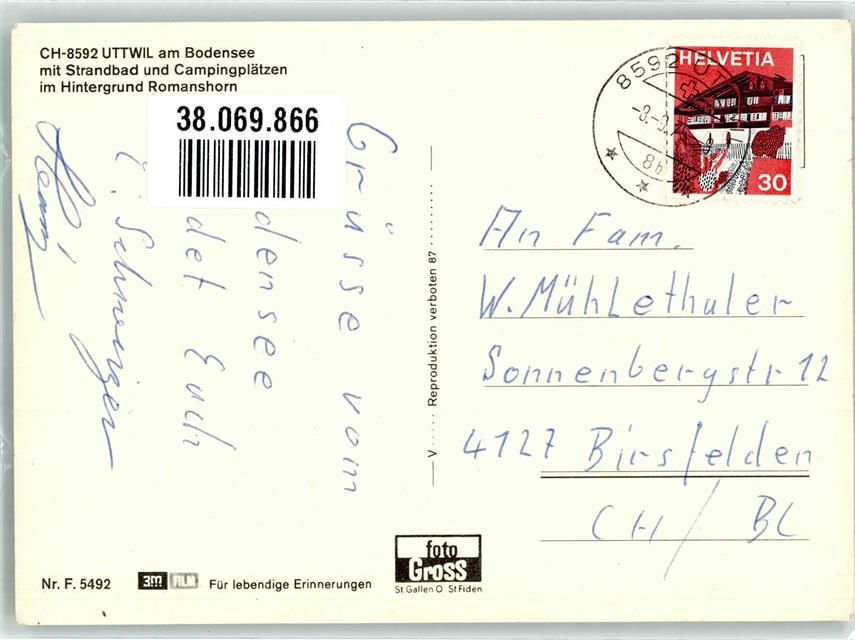 CH-8592 UTTWIL am Bodensee
mit Strandbad und Campingplätzen
im Hintergrund Romanshorn
38.069.866
Grüsse vom
densee
det Euch
Heinz
8592 UTTWIL
8h
HELVETIA
30
An Fam.
W. Mühlethaler
Sonnenbergstr 12
4127 Birsfelden
CH / BL
V ..... Reproduktion verboten 87 ..........
Nr. F. 5492
3M FILM Für lebendige Erinnerungen
foto
Gross
St.Gallen O St.Fiden